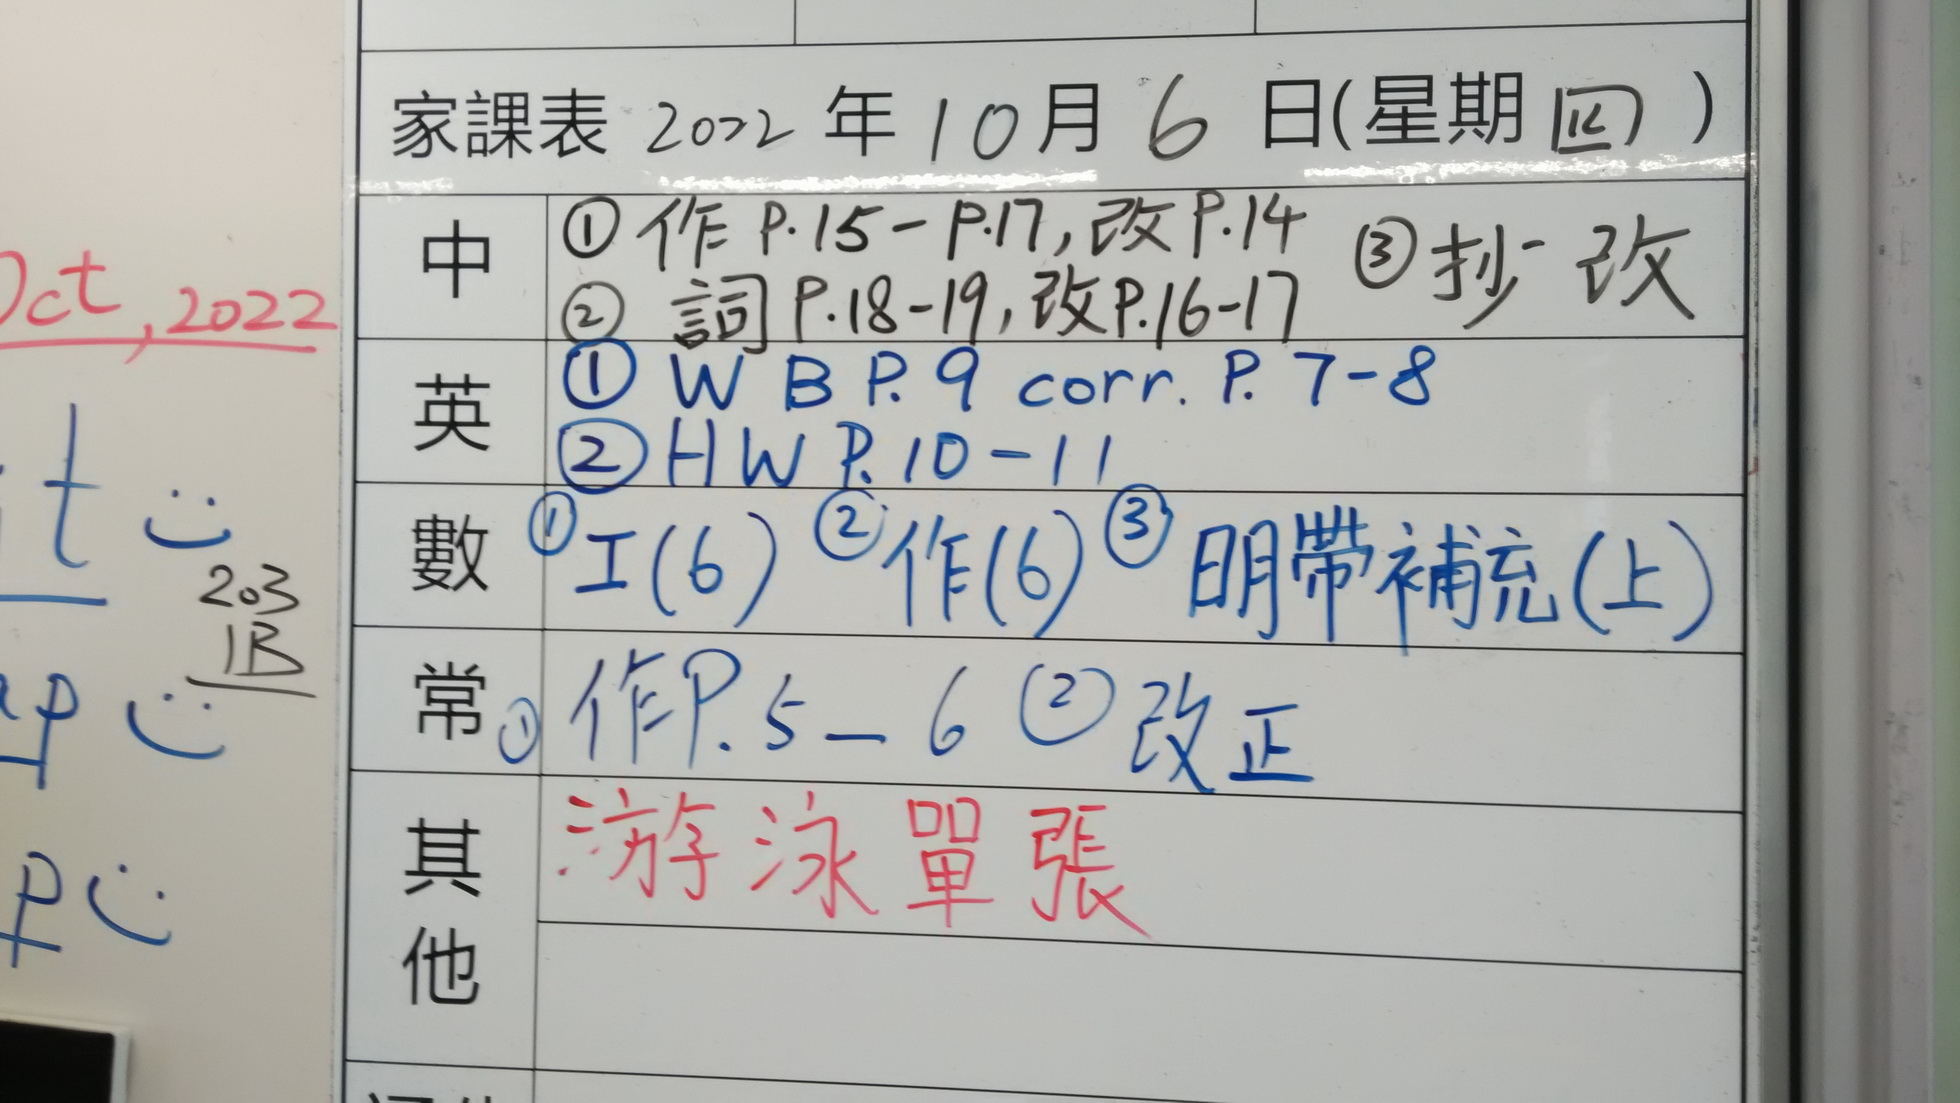 家課表 2022 年 10 月 6 日(星期 四)
中
① 作 P.15-P.17, 改P.14 ③抄改
② 詞 P.18-19, 改P.16-17
英
① WB P.9 corr. P.7-8
② HW P.10-11
數
①工(6) ②作(6) ③明帶補充(上)
常
① 作P.5-6 ②改正
其他
游泳單張
Oct, 2022
203
1B